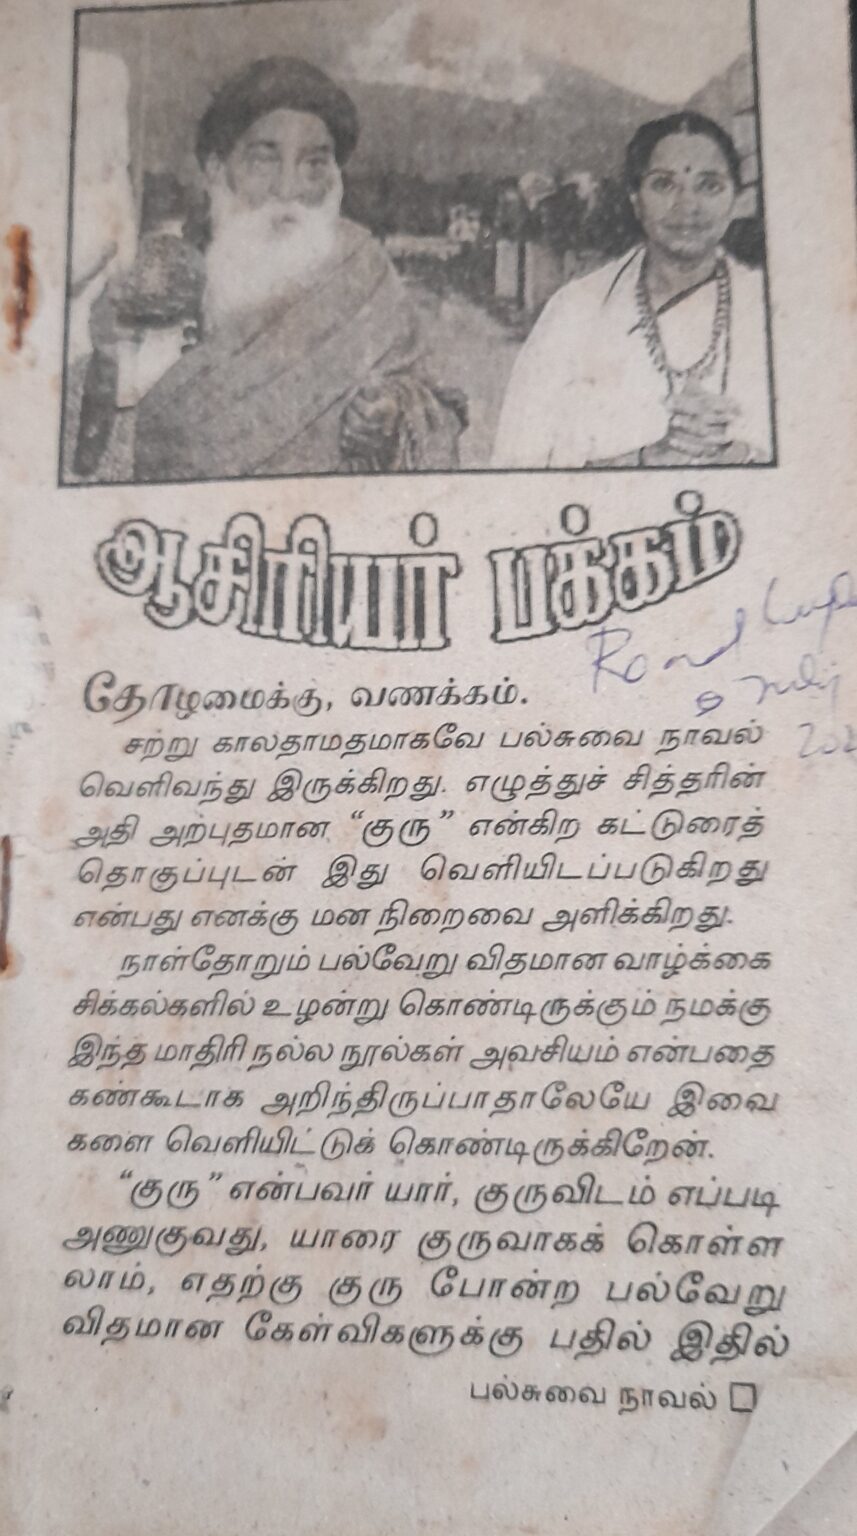 ஆசிரியர் பக்கம்
தோழமைக்கு, வணக்கம்.
சற்று காலதாமதமாகவே பல்சுவை நாவல்
வெளிவந்து இருக்கிறது. எழுத்துச் சித்தரின்
அதி அற்புதமான “குரு” என்கிற கட்டுரைத்
தொகுப்புடன் இது வெளியிடப்படுகிறது
என்பது எனக்கு மன நிறைவை அளிக்கிறது.
நாள்தோறும் பல்வேறு விதமான வாழ்க்கை
சிக்கல்களில் உழன்று கொண்டிருக்கும் நமக்கு
இந்த மாதிரி நல்ல நூல்கள் அவசியம் என்பதை
கண்கூடாக அறிந்திருப்பாதாலேயே இவை
களை வெளியிட்டுக் கொண்டிருக்கிறேன்.
“குரு” என்பவர் யார், குருவிடம் எப்படி
அணுகுவது, யாரை குருவாகக் கொள்ள
லாம், எதற்கு குரு போன்ற பல்வேறு
விதமான கேள்விகளுக்கு பதில் இதில்
பல்சுவை நாவல்